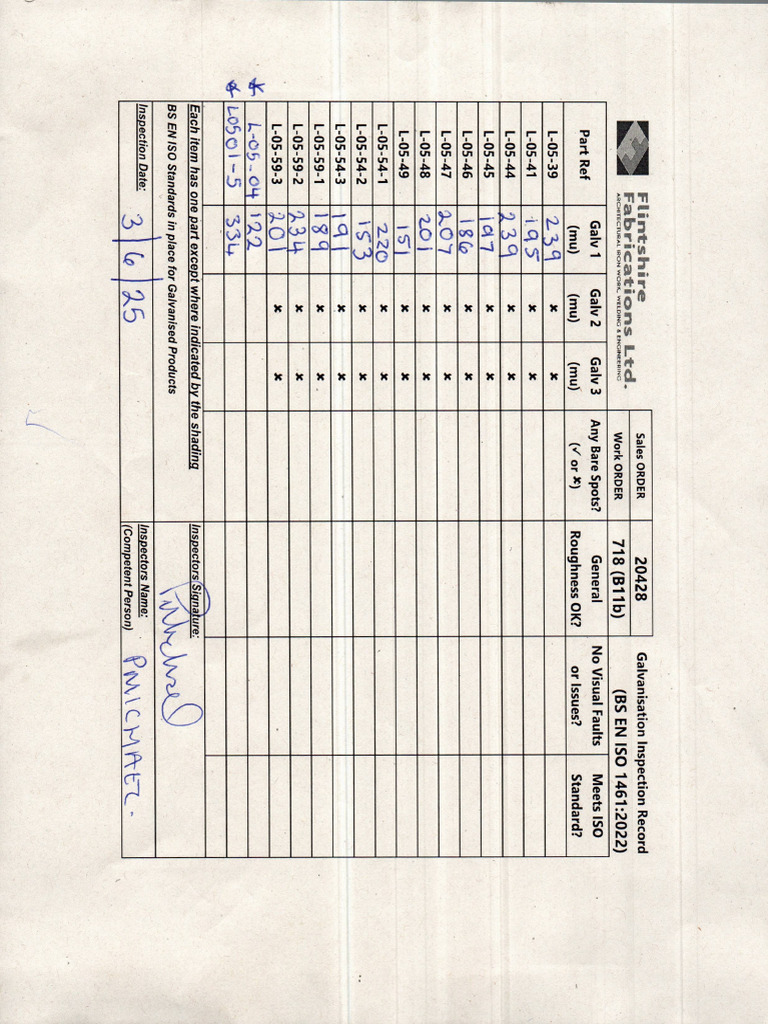 Flintshire
Fabrications Ltd.
ARCHITECTURAL IRON WORK, WELDING & ENGINEERING
Sales ORDER 20428 Galvanisation Inspection Record
Work ORDER 718 (B11b) (BS EN ISO 1461:2022)
Part Ref Galv 1 (mu) Galv 2 (mu) Galv 3 (mu) Any Bare Spots? (✓ or ×) General Roughness OK? No Visual Faults or Issues? Meets ISO Standard?
L-05-39 239 × ×
L-05-41 195 × ×
L-05-44 239 × ×
L-05-45 197 × ×
L-05-46 186 × ×
L-05-47 207 × ×
L-05-48 201 × ×
L-05-49 151 × ×
L-05-54-1 220 × ×
L-05-54-2 153 × ×
L-05-54-3 191 × ×
L-05-59-1 189 × ×
L-05-59-2 234 × ×
L-05-59-3 201 × ×
* L-05-04 122
* L0501-5 334
Each item has one part except where indicated by the shading
BS EN ISO Standards in place for Galvanised Products
Inspectors Signature:
Inspection Date: 3/6/25
Inspectors Name: (Competent Person)